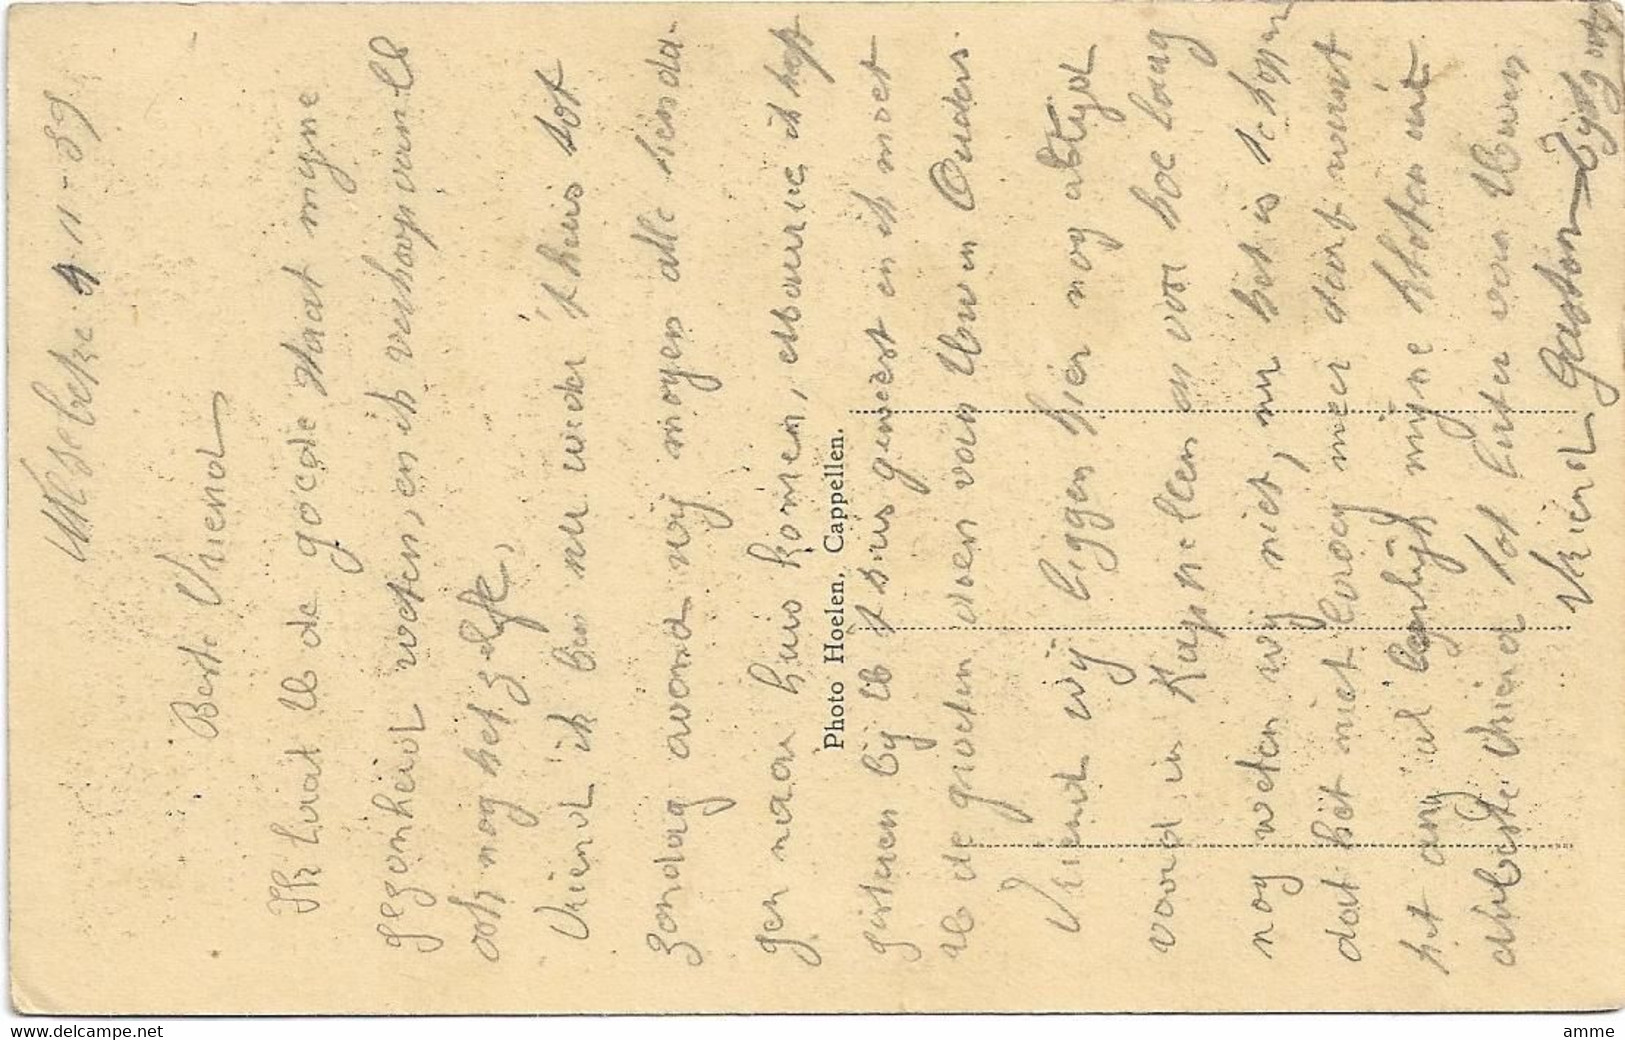 Melsebeke 9-11-39
Beste Vriend
Ik laat U de goede staat myne
gezonheid weten, en ik verhoop van U
ook nog het zelfde,
Vriend ik ben nu weder t'huis tot
zondag avond wij mogen alle tienda-
gen naar huis komen,
gisteren bij U t'huis geweest en ik moet
U de groeten doen van Uwen Ouders.
Vriend wij liggen hier nog altijd
voord in Kappellen en voor hoe laang
nog weten wy niet, nu het is te hopen
dat het niet laang meer durf want
het myne kloten uit
beste vriend tot later van Uwen
Vriend Gaston
Photo Hoelen, Cappellen.
www.delcampe.net
amme